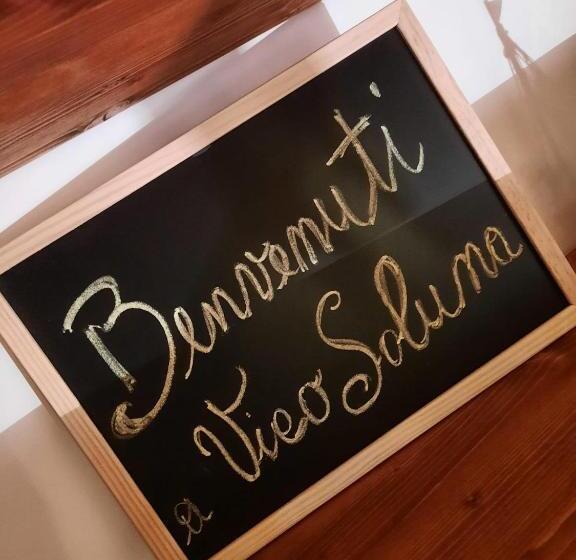 Benvenuti
a Vico Soluna